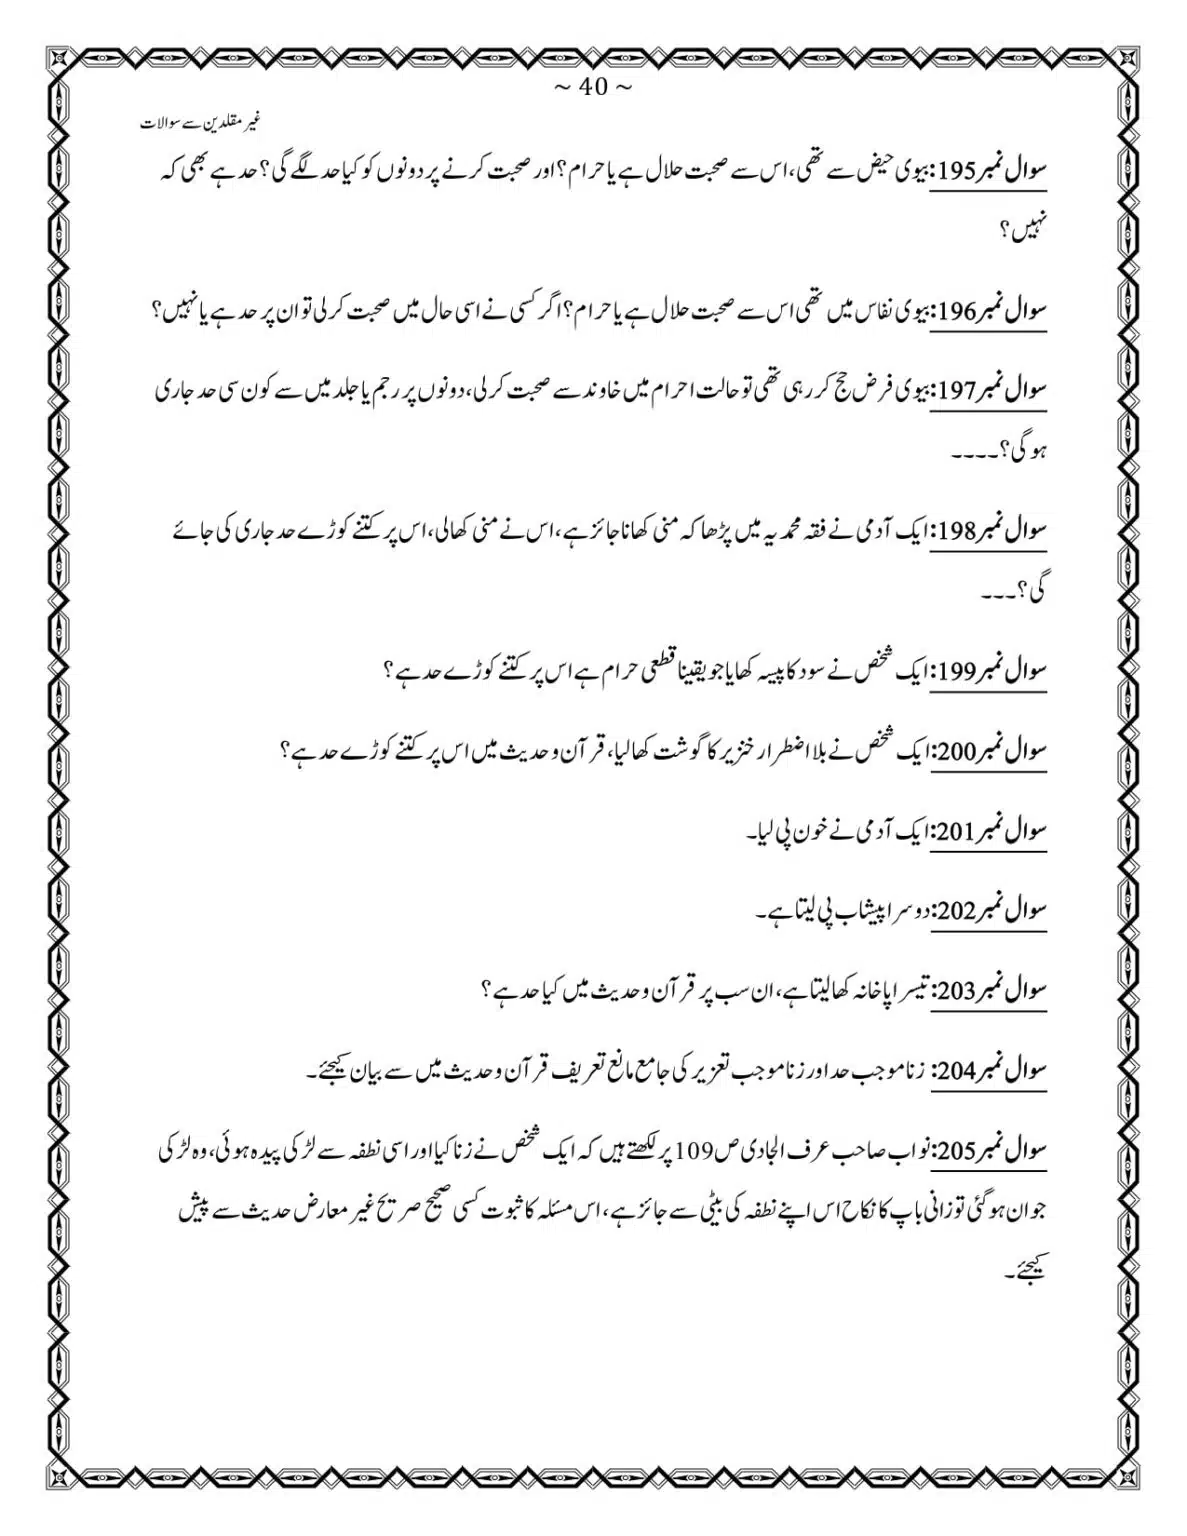 ~ 40 ~
غیر مقلدین سے سوالات
سوال نمبر195:بیوی حیض سے تھی،اس سے صحبت حلال ہے یا حرام؟اور صحبت کرنے پر دونوں کو کیا حد لگے گی؟حد ہے بھی کہ
نہیں؟
سوال نمبر196:بیوی نفاس میں تھی اس سے صحبت حلال ہے یا حرام؟اگر کسی نے اسی حال میں صحبت کرلی تو ان پر حد ہے یا نہیں؟
سوال نمبر197:بیوی فرض حج کررہی تھی تو حالت احرام میں خاوند سے صحبت کرلی،دونوں پر رجم یا جلد میں سے کون سی حد جاری
ہوگی؟۔۔۔۔
سوال نمبر198:ایک آدمی نے فقہ محمدیہ میں پڑھا کہ منی کھانا جائز ہے،اس نے منی کھالی،اس پر کتنے کوڑے حد جاری کی جائے
گی؟۔۔۔
سوال نمبر199:ایک شخص نے سود کا پیسہ کھایا جو یقینا قطعی حرام ہے اس پر کتنے کوڑے حد ہے؟
سوال نمبر200:ایک شخص نے بلا اضطرار خنزیر کا گوشت کھالیا،قرآن وحدیث میں اس پر کتنے کوڑے حد ہے؟
سوال نمبر201:ایک آدمی نے خون پی لیا۔
سوال نمبر202:دوسرا پیشاب پی لیتا ہے۔
سوال نمبر203:تیسرا پاخانہ کھالیتا ہے،ان سب پر قرآن وحدیث میں کیا حد ہے؟
سوال نمبر204: زنا موجب حد اور زنا موجب تعزیر کی جامع مانع تعریف قرآن وحدیث میں سے بیان کیجئے۔
سوال نمبر205:نواب صاحب عرف الجادی ص109 پر لکھتے ہیں کہ ایک شخص نے زنا کیا اور اسی نطفہ سے لڑکی پیدہ ہوئی،وہ لڑکی
جوان ہوگئی تو زانی باپ کا نکاح اس اپنے نطفہ کی بیٹی سے جائز ہے،اس مسئلہ کا ثبوت کسی صحیح صریح غیر معارض حدیث سے پیش
کیجئے۔